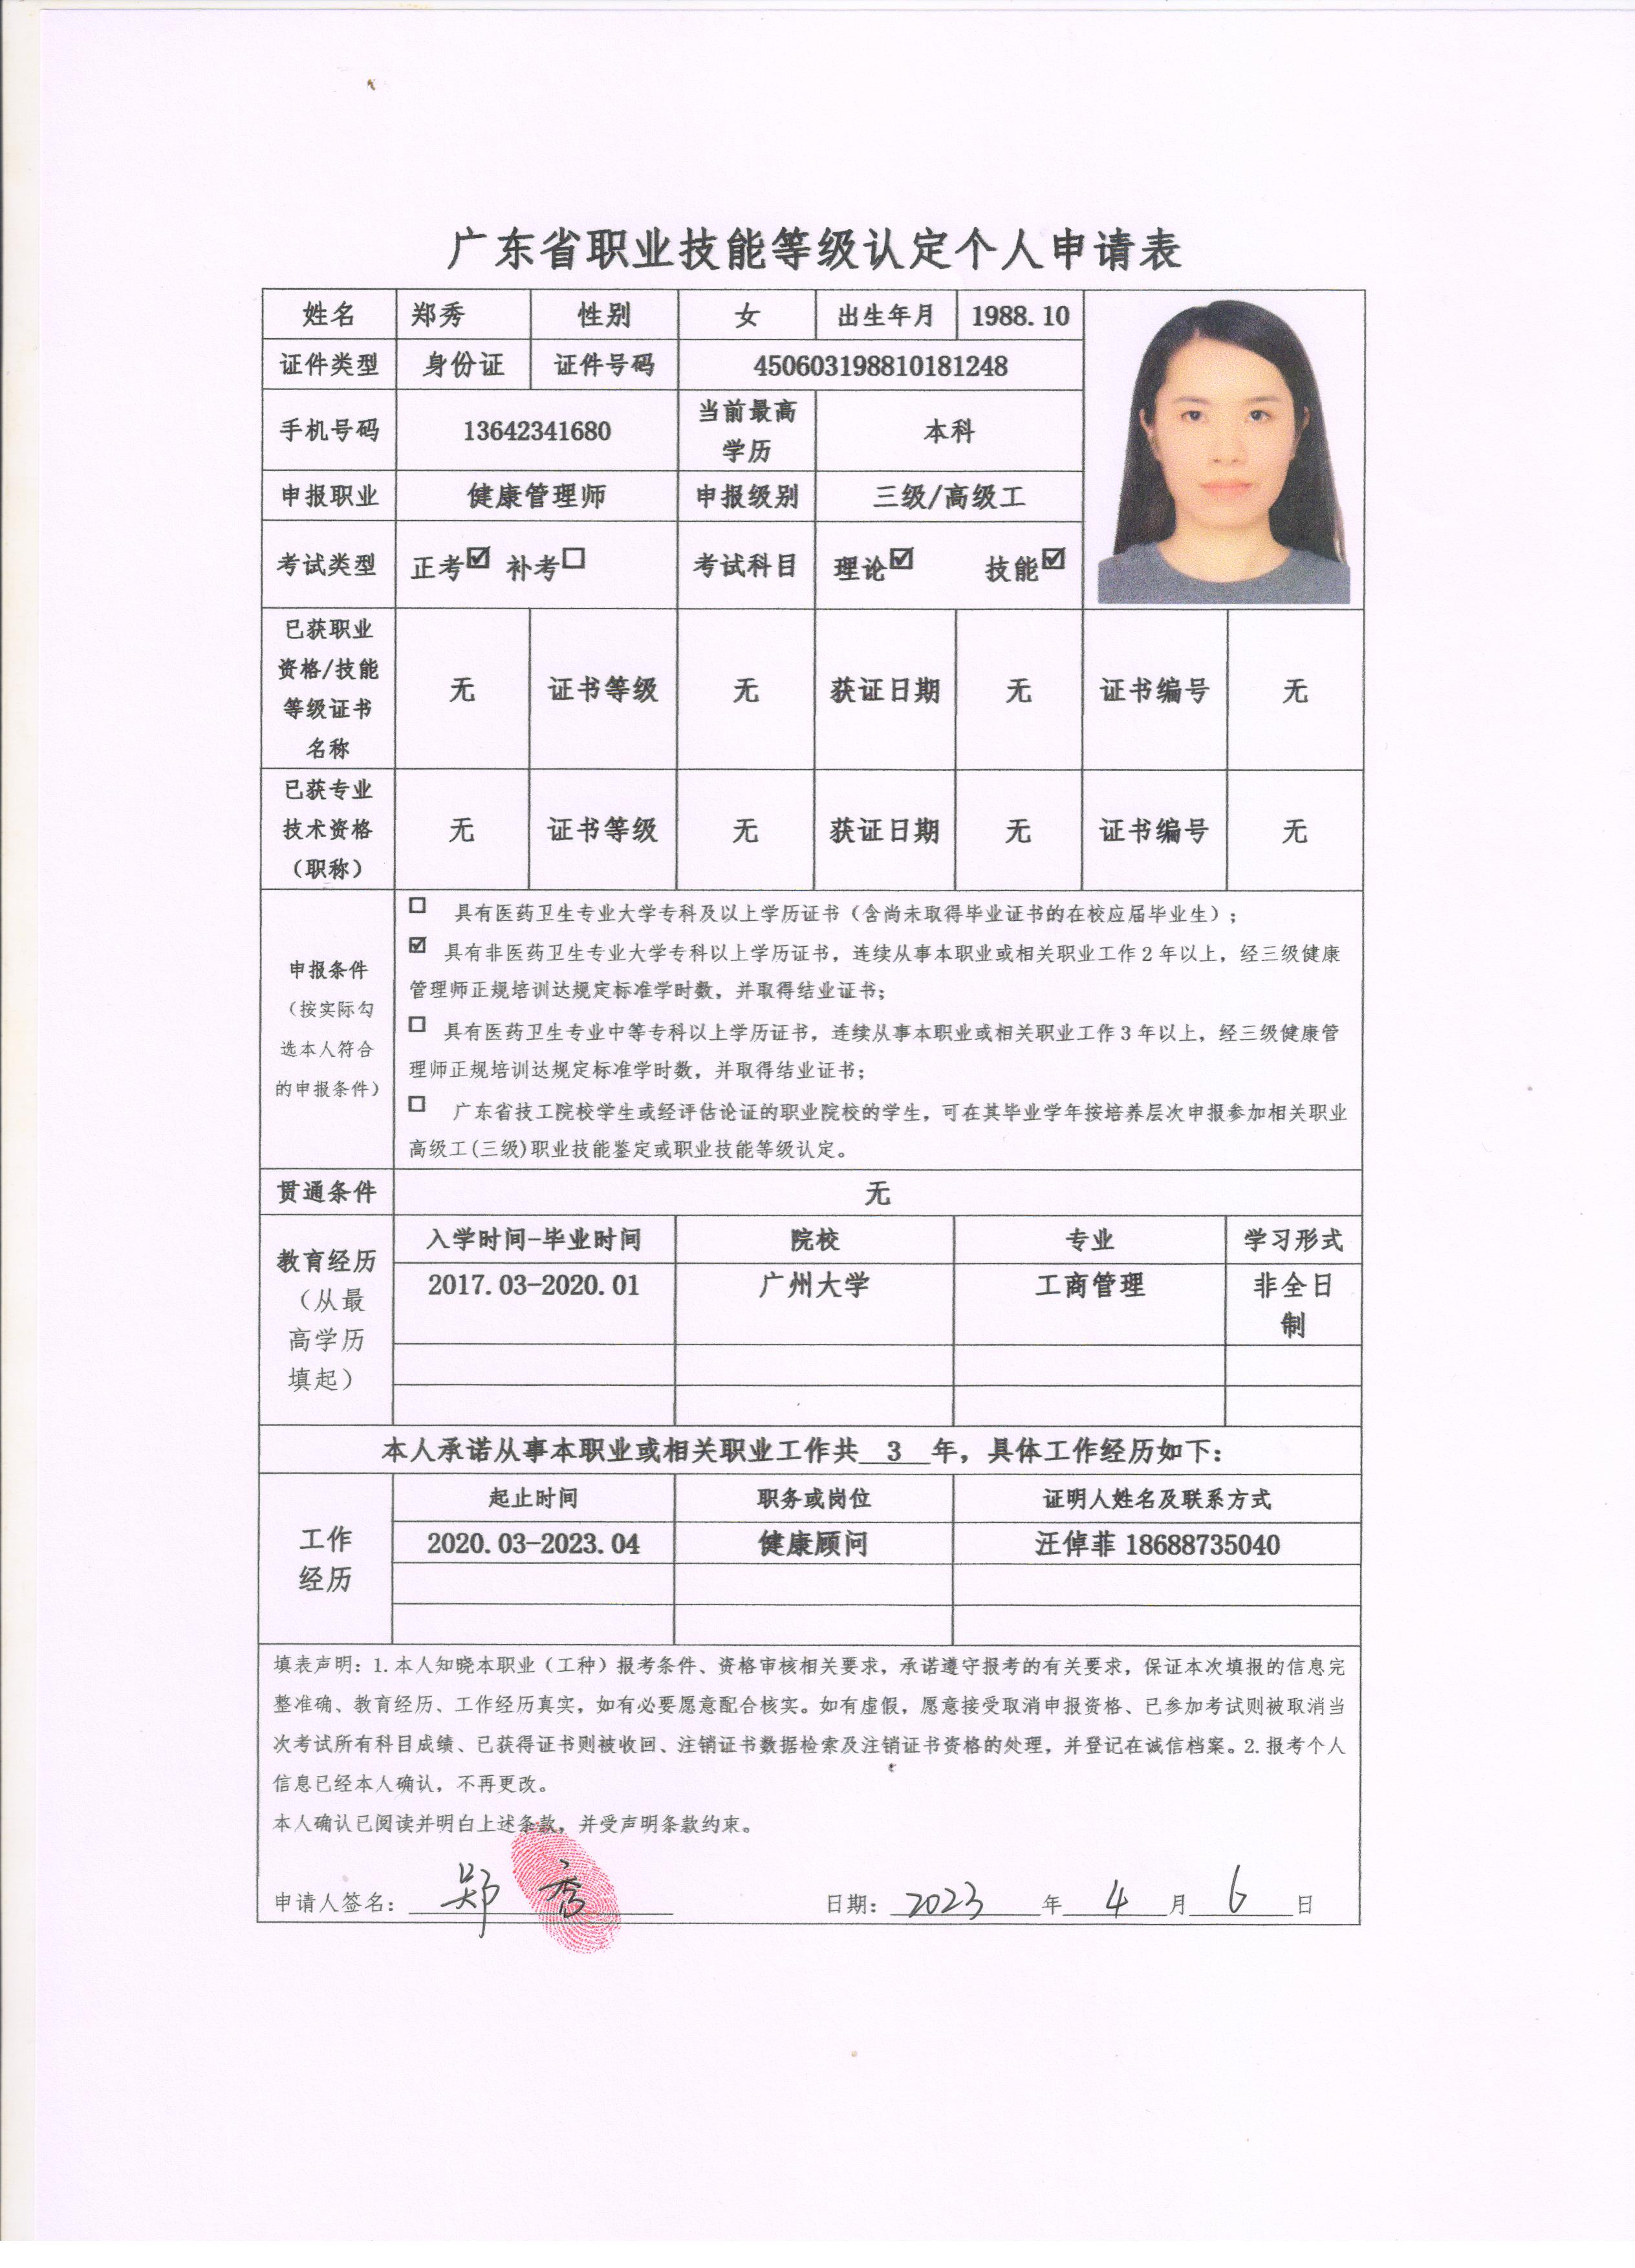 广东省职业技能等级认定个人申请表
姓名 郑秀 性别 女 出生年月 1988.10
证件类型 身份证 证件号码 450603198810181248
手机号码 13642341680 当前最高学历 本科
申报职业 健康管理师 申报级别 三级/高级工
考试类型 正考☑ 补考☐ 考试科目 理论☑ 技能☑
已获职业资格/技能等级证书名称 无 证书等级 无 获证日期 无 证书编号 无
已获专业技术资格（职称） 无 证书等级 无 获证日期 无 证书编号 无
申报条件
（按实际勾选本人符合的申报条件）
☐ 具有医药卫生专业大学专科及以上学历证书（含尚未取得毕业证书的在校应届毕业生）；
☑ 具有非医药卫生专业大学专科以上学历证书，连续从事本职业或相关职业工作2年以上，经三级健康
管理师正规培训达规定标准学时数，并取得结业证书；
☐ 具有医药卫生专业中等专科以上学历证书，连续从事本职业或相关职业工作3年以上，经三级健康管
理师正规培训达规定标准学时数，并取得结业证书；
☐ 广东省技工院校学生或经评估论证的职业院校的学生，可在其毕业学年按培养层次申报参加相关职业
高级工(三级)职业技能鉴定或职业技能等级认定。
贯通条件 无
教育经历（从最高学历填起）
入学时间-毕业时间 院校 专业 学习形式
2017.03-2020.01 广州大学 工商管理 非全日制
本人承诺从事本职业或相关职业工作共 3 年，具体工作经历如下：
工作经历
起止时间 职务或岗位 证明人姓名及联系方式
2020.03-2023.04 健康顾问 汪倬菲 18688735040
填表声明：1.本人知晓本职业（工种）报考条件、资格审核相关要求，承诺遵守报考的有关要求，保证本次填报的信息完
整准确、教育经历、工作经历真实，如有必要愿意配合核实。如有虚假，愿意接受取消申报资格、已参加考试则被取消当
次考试所有科目成绩、已获得证书则被收回、注销证书数据检索及注销证书资格的处理，并登记在诚信档案。2.报考个人
信息已经本人确认，不再更改。
本人确认已阅读并明白上述条款，并受声明条款约束。
申请人签名： 郑秀 日期： 2023 年 4 月 6 日